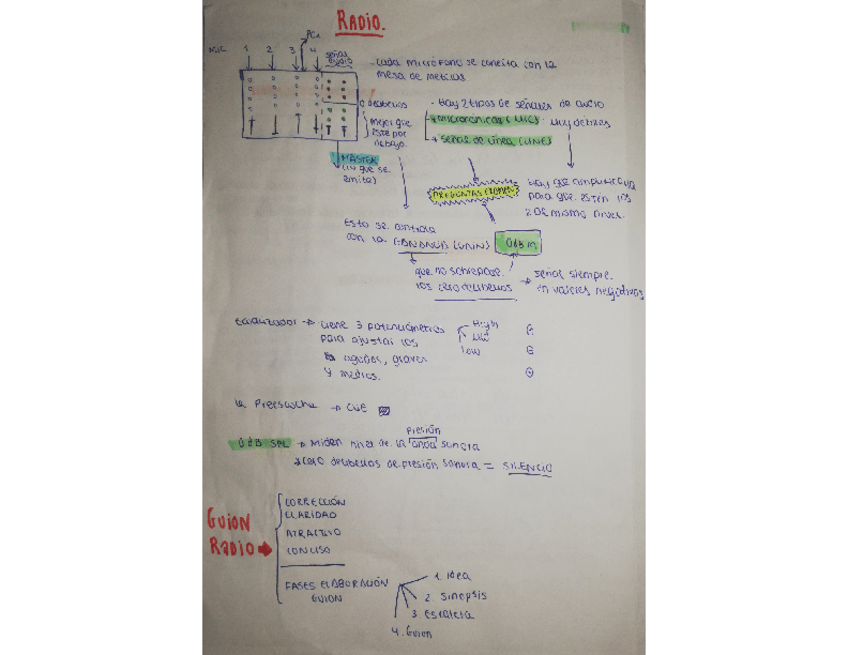 RADIO.
PC
MIC 1 2 3 4 señal audio
- Cada micrófono se conecta con la
mesa de mezclas
0 decibelios
mejor que
este por
debajo.
- Hay 2 tipos de señales de audio
microfónicas (MIC)
señal de línea (LINE)
MASTER
(lo que se
emite)
PREGUNTAS EXAMEN
Hay que
para que estén los
2 al mismo nivel.
Esto se controla
con la GANANCIA (GAIN)
0dBm
que no sobrepase
los cero decibelios
→ señal siempre
en valores negativos
Ecualizador → tiene 3 potenciómetros
para ajustar los
agudos, graves
y medios.
High
Mid
Low
La Preescucha → CUE
0dB SPL → Miden nivel de la presión onda sonora
cero decibelios de presión sonora = SILENCIO
GUION
RADIO →
CORRECCIÓN
CLARIDAD
ATRACTIVO
CONCISO
FASES ELABORACIÓN
GUION
1. Idea
2. Sinopsis
3. Escaleta
4. Guion